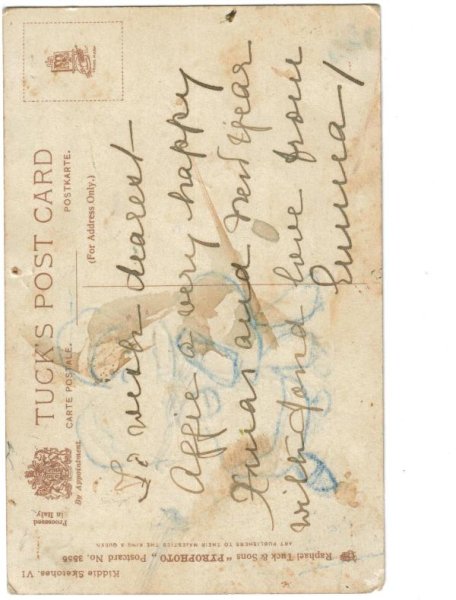 TUCK'S POST CARD
CARTE POSTALE. POSTKARTE.
(For Address Only.)
By Appointment
Processed
in Italy
To wish dearest
Affie a very happy
Xmas and New Year
with fond love from
Emma
Raphael Tuck & Sons "PYROPHOTO" Postcard No. 3556
ART PUBLISHERS TO THEIR MAJESTIES THE KING & QUEEN.
Kiddie Sketches. VI